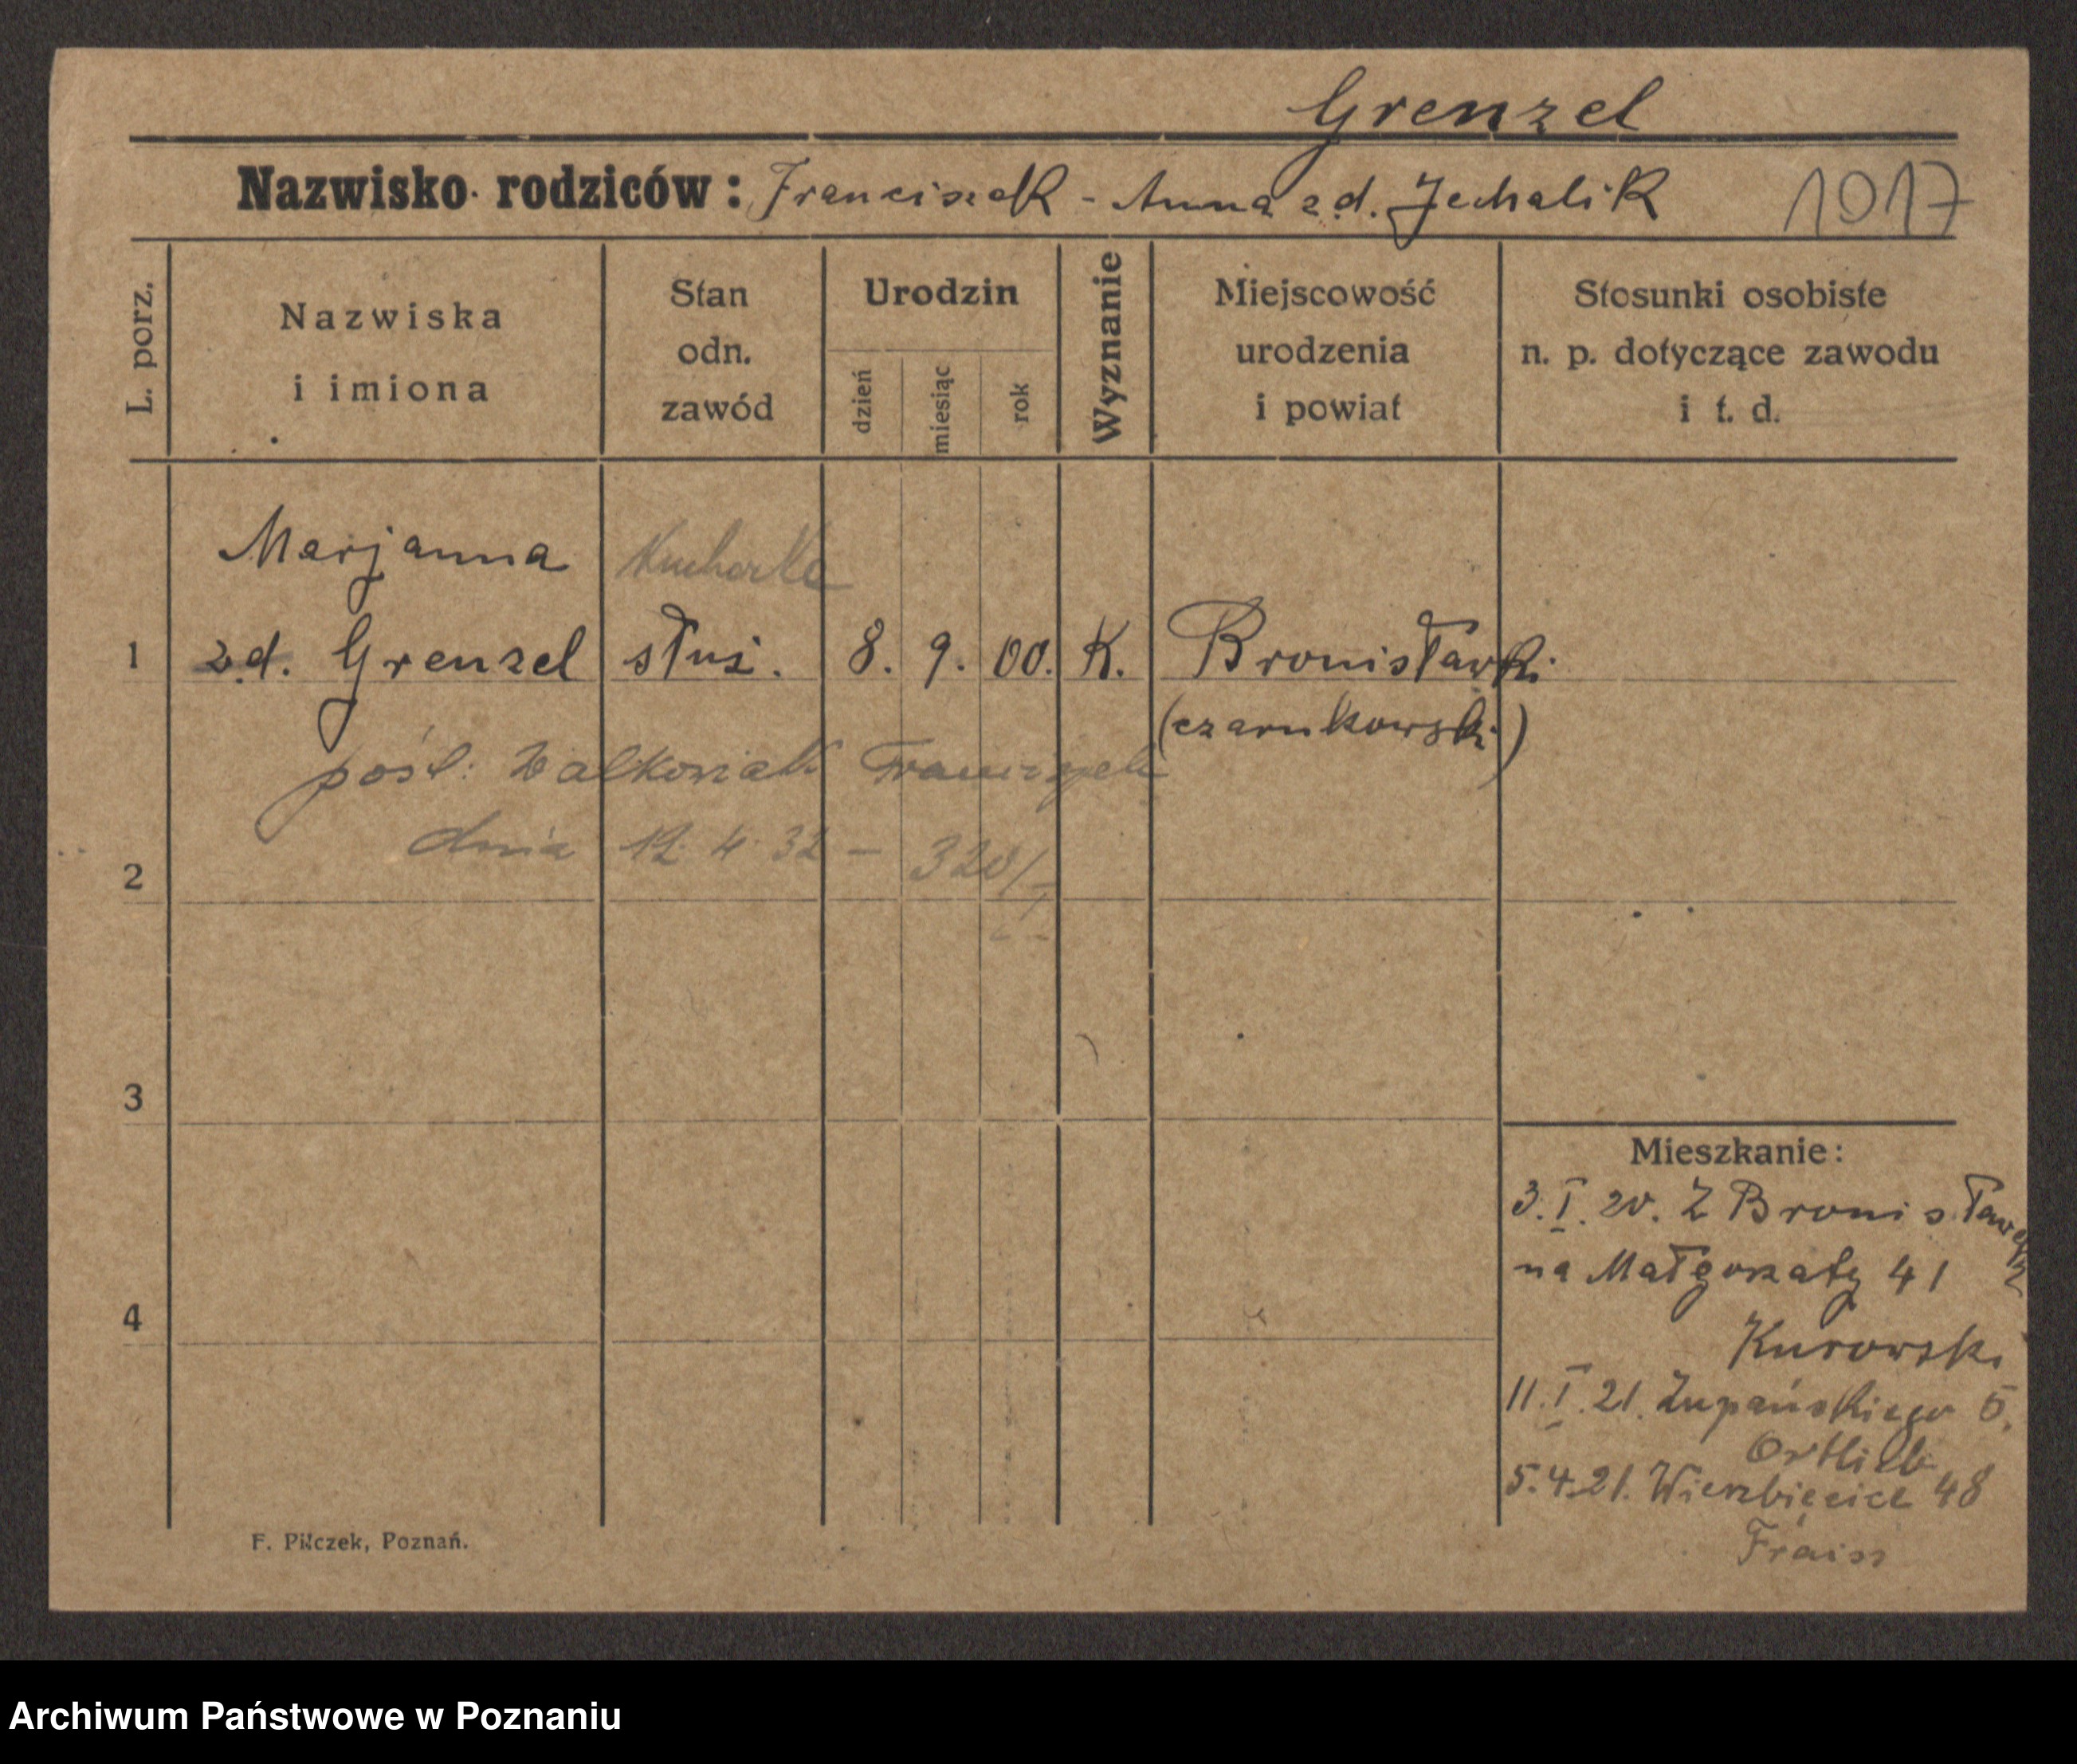 Grenzel
Nazwisko rodziców: Franciszek - Anna z d. Jechalik 1017
L. porz.
Nazwiska i imiona
Stan odn. zawód
Urodzin
dzień
miesiąc
rok
Wyznanie
Miejscowość urodzenia i powiat
Stosunki osobiste n. p. dotyczące zawodu i t. d.
Marjanna Kucharka
1 z d. Grenzel służ. 8. 9. 00. K. Bronisławki
(czarnkowski)
pośl:
dnia 12. 4. 32 -
2
3
4
Mieszkanie:
3. I. 20. Z Bronisławek
na Małgorzaty 41
Kurowski
11. I. 21. Żupańskiego 5.
Ortlieb
5.4.21. Wierzbięcice 48
F. Pilczek, Poznań.
Archiwum Państwowe w Poznaniu